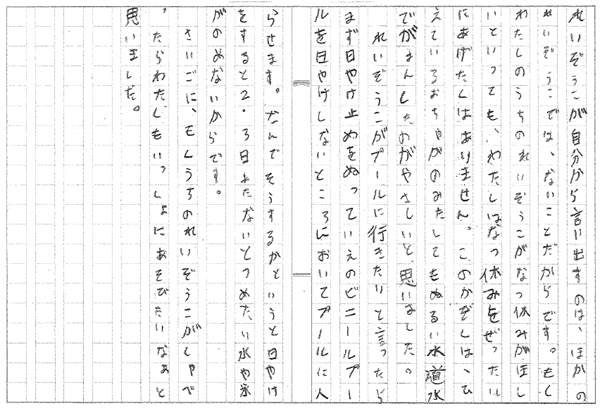 れいぞうこが自分から言い出すのは、ほかの
れいぞうこでは、ないことだからです。もし
わたしのうちのれいぞうこがなつ休みがほし
いといっても、わたしはなつ休みをぜったい
にあげたくはありません。このかぞくは、ひ
えているおちゃがのみたくてもぬるい水道水
でがまんしたのがやさしいと思いました。
れいぞうこがプールに行きたいと言ったら
まず日やけ止めをぬっていえのビニールプー
ルを日やけしないところにおいてプールに入
らせます。なんでそうするかというと日やけ
をすると2、3日たたないとつめたい水や氷
がのめないからです。
さいごに、もしうちのれいぞうこがしゃべ
ったらわたしもいっしょにあそびたいなあと
思いました。